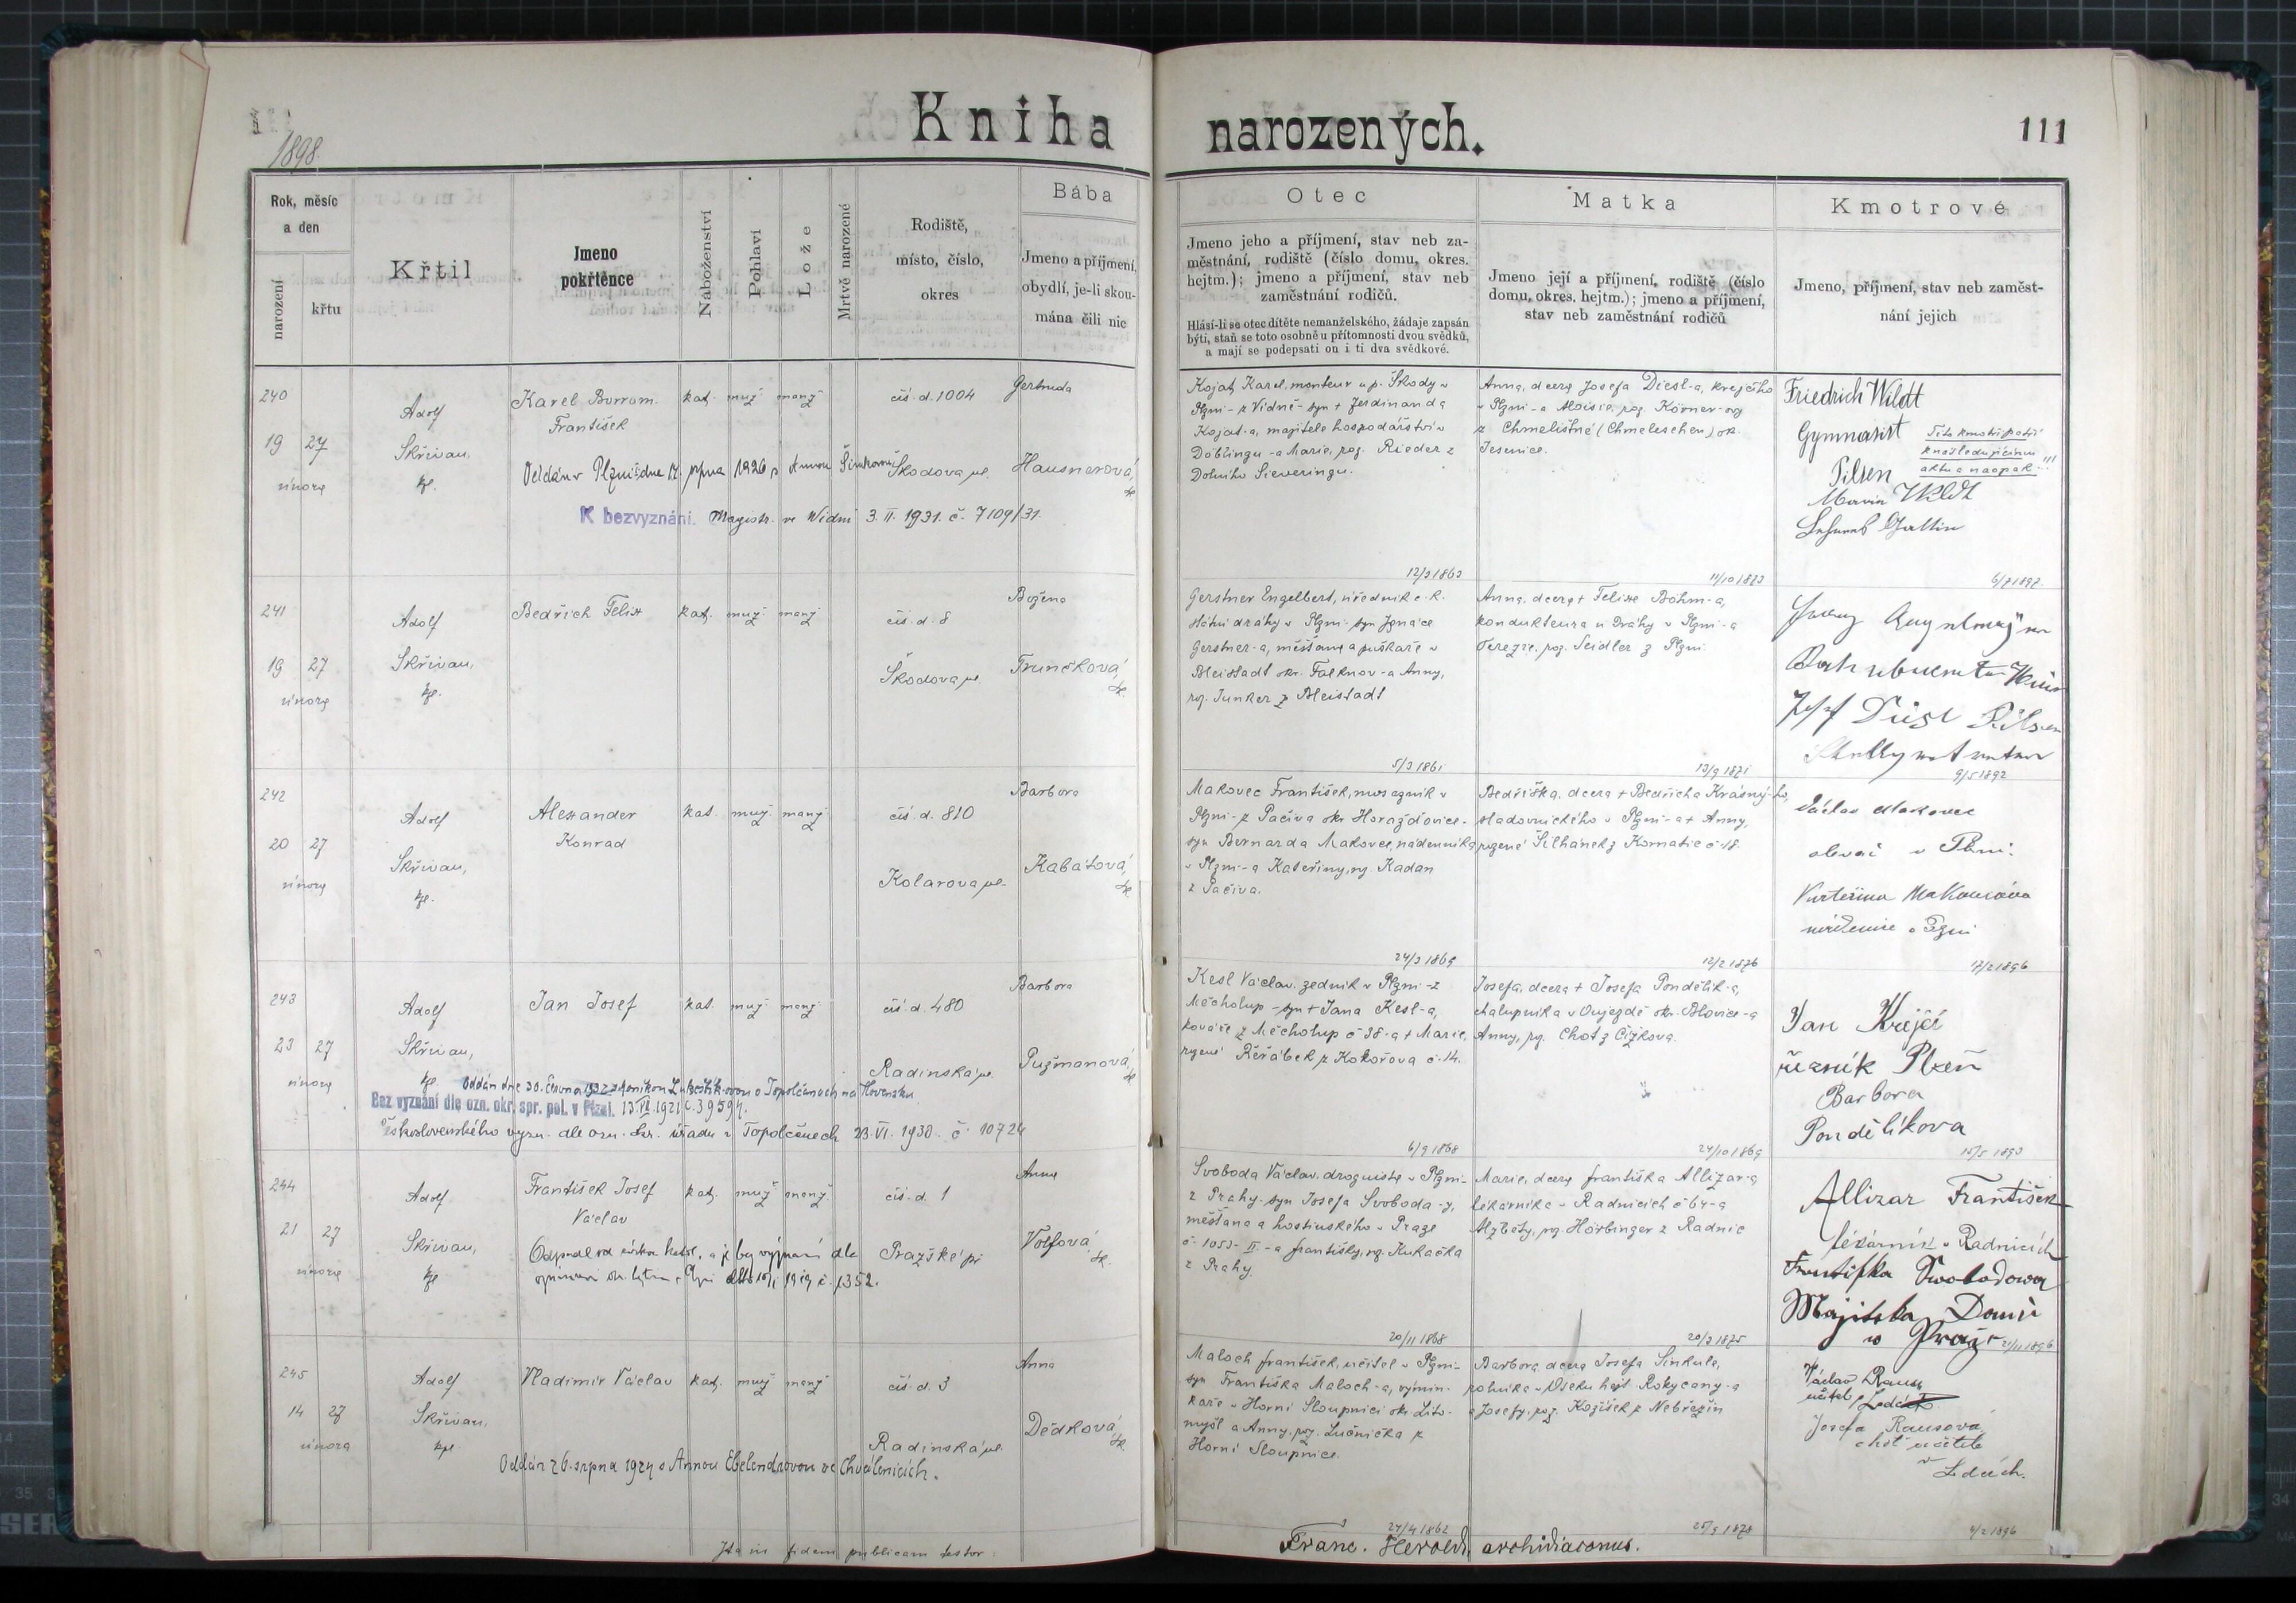 Kniha narozených.
111
1898
Rok, měsíc
a den
narození
křtu
Křtil
Jmeno
pokřtěnce
Náboženství
Pohlaví
Lože
Mrtvě narozené
Rodiště,
místo, číslo,
okres
Bába
Jmeno a příjmení,
obydlí, je-li skou-
mána čili nic
Otec
Jmeno jeho a příjmení, stav neb za-
městnání, rodiště (číslo domu, okres.
hejtm.); jmeno a příjmení, stav neb
zaměstnání rodičů.
Hlásí-li se otec dítěte nemanželského, žádaje zapsán
býti, staň se toto osobně u přítomnosti dvou svědků,
a mají se podepsati on i ti dva svědkové.
Matka
Jmeno její a příjmení, rodiště (číslo
domu, okres. hejtm.); jmeno a příjmení,
stav neb zaměstnání rodičů
Kmotrové
Jmeno, příjmení, stav neb zaměst-
nání jejich
240
19 27
února
Adolf
Skřivan,
kpl.
Karel Borrom.
František
kat. muž. manž.
čís. d. 1004
Škodova ul.
Gertruda
Hausnerová,
zk.
Oddán v Plzni dne 17. srpna 1926 s Annou
K bezvyznání. Magistr. ve Vídni 3. II. 1931. č. 7109/31.
Kojat Karel, monteur u p. Škody v
Plzni - z Vídně - syn + Ferdinanda
Kojat-a, majitele hospodářství v
Döblingu - a Marie, roz. Rieder z
Dolního Sieveringu.
12/3 1863
Anna, dcera Josefa Diesl-a, krejčího
v Plzni - a Aloisie, roz. Körner-ový
z Chmelištné (Chmeleschen) ok.
Jesenice.
11/10 1873
Friedrich Wildt
Gymnasist
Pilsen
Tito kmotři patří
k následujícímu
aktu a naopak!!!
Maria Wildt
6/7 1897.
241
19 27
února
Adolf
Skřivan,
kpl.
Bedřich Felix
kat. muž. manž.
čís. d. 8
Škodova ul.
Božena
Trunčková,
zk.
Gerstner Engelbert, úředník c. k.
státní dráhy v Plzni - syn Ignáce
Gerstner-a, měšťana a puškaře v
Bleistadt okr. Falknov - a Anny,
roz. Junker z Bleistadt
5/3 1861
Anna, dcera + Felixe Böhm-a,
kondukteura u dráhy v Plzni - a
Terezie, roz. Seidler z Plzni.
13/9 1871
Josef Diesl Pilsen
9/5 1892
242
20 27
února
Adolf
Skřivan,
kpl.
Alexander
Konrad
kat. muž. manž.
čís. d. 810
Kolarova ul.
Barbora
Kabátová,
zk.
Makovec František, mosazník v
Plzni - z Pačiva okr. Horažďovice -
syn Bernarda Makovce, nádenníka
v Plzni - a Kateřiny, roz. Kadan
z Pačiva.
24/3 1869
Bedřiška, dcera + Bedřicha Krásný-ho,
sladovnického v Plzni - a + Anny,
rozené Šilhánek z Kornatic č. 18.
12/2 1876
Václav Makovec
slevač v Plzni.
Kateřina Makovcová
v Plzni
17/2 1896
243
23 27
února
Adolf
Skřivan,
kpl.
Jan Josef
kat. muž. manž.
čís. d. 480
Radinská ul.
Barbora
Pužmanová,
zk.
Oddán dne 30. června 1923 v Topolčanech na Slovensku
Bez vyznání dle ozn. okr. spr. pol. v Plzni. 13. VI. 1921 č. 39594.
Československého vyzn. dle ozn. okr. úřadu v Topolčanech 23. VI. 1930. č. 10724
Kesl Václav, zedník v Plzni - z
Měcholup - syn + Jana Kesl-a,
kováře z Měcholup č. 38 - a + Marie,
rozené Řeřábek z Kokořova č. 14.
6/9 1868
Josefa, dcera + Josefa Pondělík-a,
chalupníka v Oujezdě okr. Blovice - a
Anny, roz. Chot z Čížkova.
24/10 1869
Jan Krejčí
řezník Plzeň
Barbora
Pondělíkova
15/5 1893
244
21 27
února
Adolf
Skřivan,
kpl.
František Josef
Václav
kat. muž. manž.
čís. d. 1
Pražské př.
Anna
Volfová,
zk.
Odpadl od církve katol. a je bez vyznání dle
oznámení okr. hejtm. v Plzni 1919 č. 1352.
Svoboda Václav, droguista v Plzni -
z Prahy - syn Josefa Svoboda-y,
měšťana a hostinského v Praze
č. 1053-II. - a Františky, roz. Kukačka
z Prahy.
20/11 1868
Marie, dcera Františka Allizar-a,
lékárníka v Radnicích č. 64 - a
Alžběty, roz. Hörbinger z Radnic
20/3 1875
Allizar František
lékárník v Radnicích
Františka Swobodowa
Majitelka Domu
w Praze
21/11 1896
245
14 27
února
Adolf
Skřivan,
kpl.
Vladimír Václav
kat. muž. manž.
čís. d. 3
Radinská ul.
Anna
Dědková,
zk.
Oddán 26. srpna 1924 s Annou Ebelendrovou ve Chválenicích.
Maloch František, učitel v Plzni -
syn Františka Maloch-a, výmin-
káře v Horní Sloupnici okr. Lito-
myšl a Anny, roz. Lučnička z
Horní Sloupnice.
24/4 1862
Barbora, dcera Josefa Sinkule,
rolníka v Oseku hejt. Rokycany - a
Josefy, roz. Kozišek z Nebřezin
25/9 1878
Václav Rauss
učitel
Josefa Rausová
choť učitele
v Ledcích.
4/2 1896
Ita in fidem publicam testor:
Franc. Herold, archidiaconus.